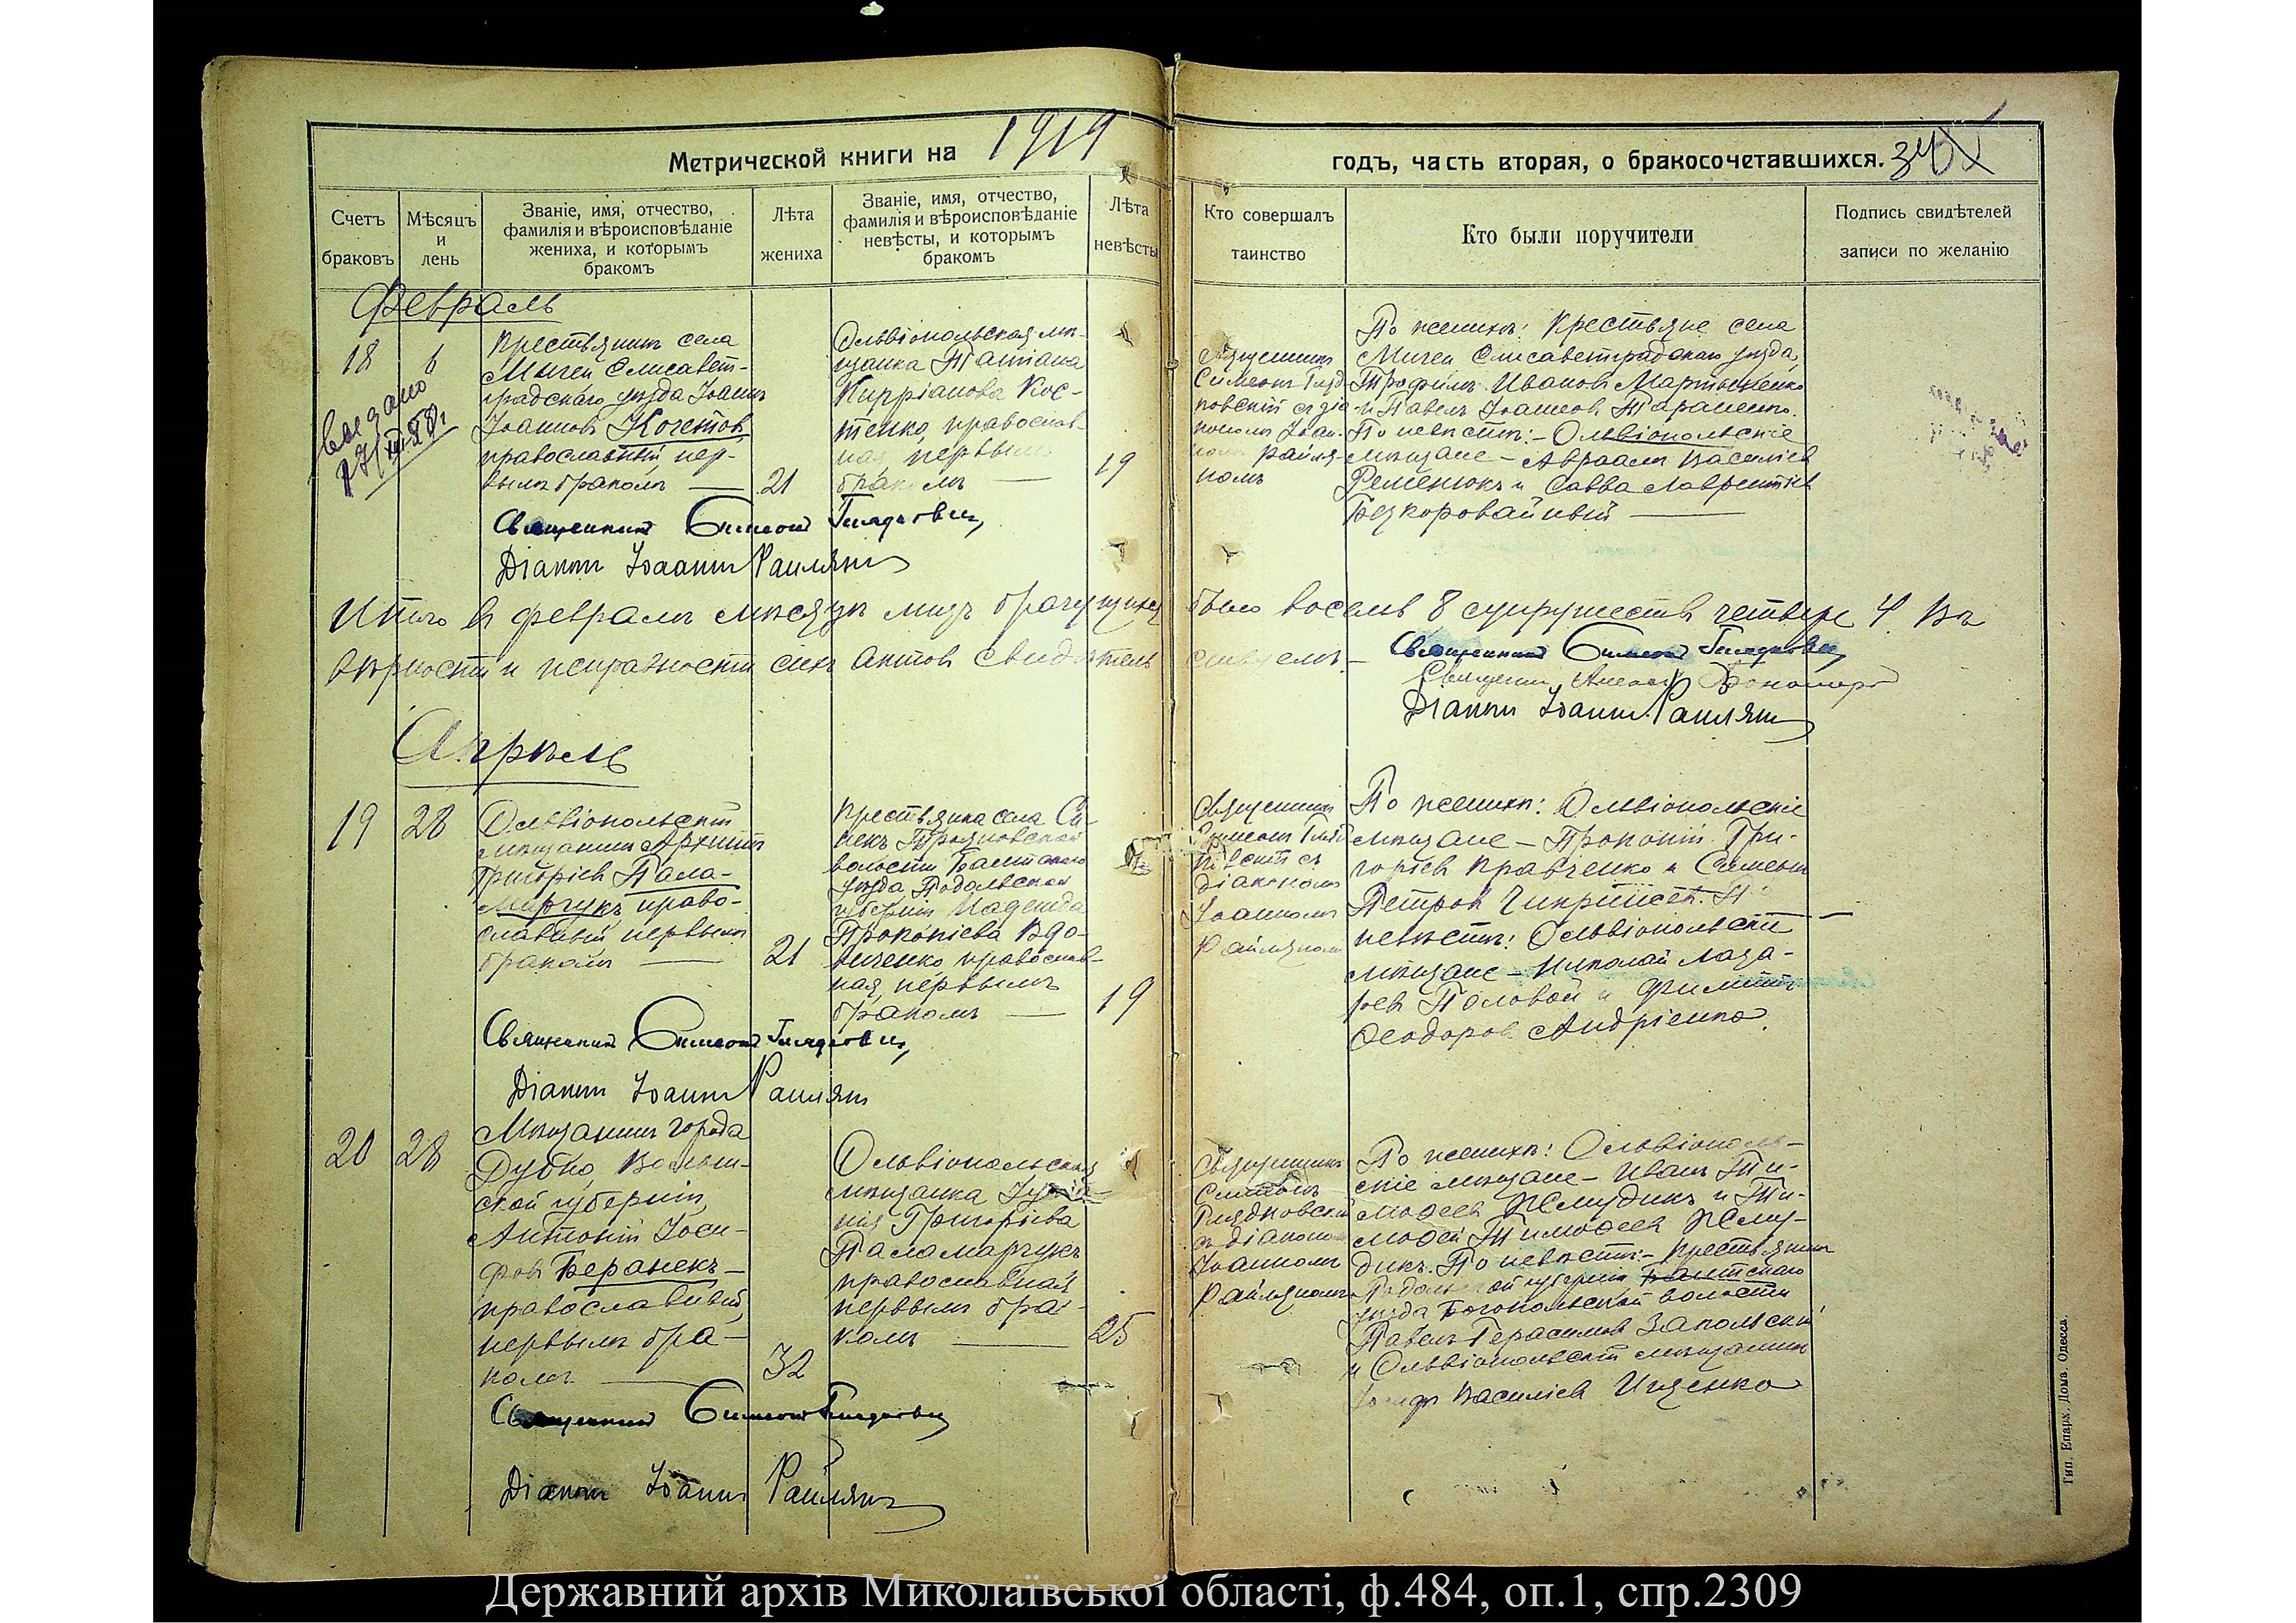 Метрической книги на 1919
годъ, часть вторая, о бракосочетавшихся.
Счетъ браковъ
Мѣсяцъ и день
Званіе, имя, отчество, фамилія и вѣроисповѣданіе жениха, и которымъ бракомъ
Лѣта жениха
Званіе, имя, отчество, фамилія и вѣроисповѣданіе невѣсты, и которымъ бракомъ
Лѣта невѣсты
Кто совершалъ таинство
Кто были поручители
Подпись свидѣтелей записи по желанію
Февраль
18
6
Крестьянинъ села
Мигеи Елисавет-
градскаго уѣзда Іоаннъ
Іоанновъ Кочетов
православный, пер-
вымъ бракомъ
21
Ольвіопольская мѣ-
щанка Татіана
Кипріанова Кос-
тенко, православ-
ная, первымъ
бракомъ
19
Священникъ
Симеонъ Гняд-
ковскій съ діа-
кономъ Іоан-
номъ Райля-
номъ
По женихѣ: Крестьяне села
Мигеи Елисаветградскаго уѣзда,
Трофимъ Ивановъ Мартыненко
и Павелъ Іоанновъ Тараненко.
По невѣстѣ: - Ольвіопольскіе
мѣщане - Авраамъ Василіев
Ременюкъ и Савва Лаврентіев
Безкоровайный
Священникъ Симеонъ Гнядковскій
Діаконъ Іоаннъ Райлянъ
Итого в февралѣ мѣсяцѣ лицъ брачущихся было восемь 8 супружествъ четыре 4. Въ
вѣрности и исправности сихъ актовъ свидѣтельствуемъ -
Священникъ Симеонъ Гнядковскій
Діаконъ Іоаннъ Райлянъ
Апрѣль
19
28
Ольвіопольскій
мѣщанинъ Архипъ
Григоріев Пала-
марчукъ, право-
славный, первымъ
бракомъ
21
Крестьянка села
волости Балтскаго
уѣзда Подольской
губерніи Надежда
Прокопіева Вдо-
виченко православ-
ная, первымъ
бракомъ
19
Священникъ
діакономъ
Іоанномъ
Райляномъ
По женихѣ: Ольвіопольскіе
мѣщане - Прокопій Гри-
горіев Кравченко и Симеонъ
Петров
невѣстѣ: Ольвіопольскіе
мѣщане - Николай Лаза-
рев Половой и Филиппъ
Ѳеодоров Андріенко.
Священникъ Симеонъ Гнядковскій
Діаконъ Іоаннъ Райлянъ
20
28
Мѣщанинъ города
Дубно, Волын-
ской губерніи,
Антоній Іоси-
фовъ Беранекъ -
православный,
первымъ бра-
комъ
32
Ольвіопольская
мѣщанка
Григоріева
Паламарчукъ
православная
первымъ бра-
комъ
25
Священникъ
Симеонъ
Гнядковскій
съ діакономъ
Іоанномъ
Райляномъ
По женихѣ: Ольвіополь-
скіе мѣщане - Иванъ Ти-
моѳеев Жмудикъ и Ти-
моѳей Тимоѳеев Жму-
дикъ. По невѣстѣ: - Крестьянин
Подольской губерніи Балтскаго
уѣзда Богопольской волости
Павелъ Герасимов Запольскій
и Ольвіопольскій мѣщанинъ
Іосифъ Василіев Ищенко
Священникъ Симеонъ Гнядковскій
Діаконъ Іоаннъ Райлянъ
Тип. Епарх. Дома Одесса.
Державний архів Миколаївської області, ф.484, оп.1, спр.2309